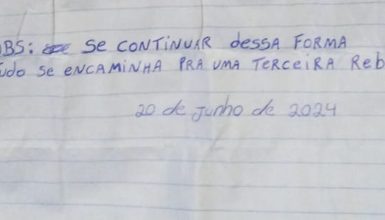 OBS: SE CONTINUAR dESSA FORMA
tudo SE ENCAMINHA PRA UMA TERCEIRA Reb
20 de Junho de 2024